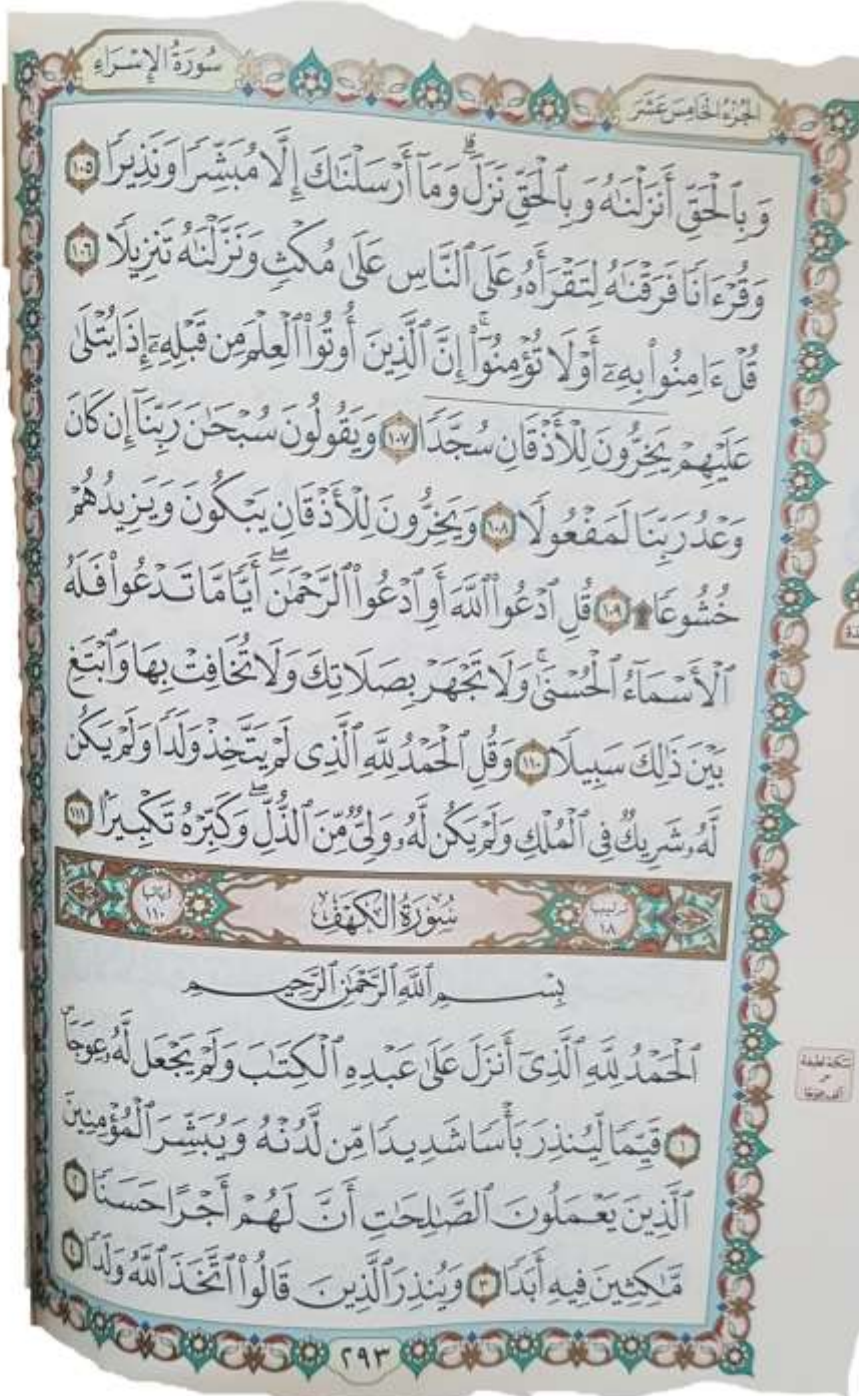 الجُزْءُ الخَامِسَ عَشَرَ
سُورَةُ الإِسْرَاءِ
وَبِٱلْحَقِّ أَنزَلْنَٰهُ وَبِٱلْحَقِّ نَزَلَۗ وَمَآ أَرْسَلْنَٰكَ إِلَّا مُبَشِّرًا وَنَذِيرًا ١٠٥
وَقُرْءَانًا فَرَقْنَٰهُ لِتَقْرَأَهُۥ عَلَى ٱلنَّاسِ عَلَىٰ مُكْثٍ وَنَزَّلْنَٰهُ تَنزِيلًا ١٠٦
قُلْ ءَامِنُوا۟ بِهِۦٓ أَوْ لَا تُؤْمِنُوٓا۟ۚ إِنَّ ٱلَّذِينَ أُوتُوا۟ ٱلْعِلْمَ مِن قَبْلِهِۦٓ إِذَا يُتْلَىٰ
عَلَيْهِمْ يَخِرُّونَ لِلْأَذْقَانِ سُجَّدًا ١٠٧ وَيَقُولُونَ سُبْحَٰنَ رَبِّنَآ إِن كَانَ
وَعْدُ رَبِّنَا لَمَفْعُولًا ١٠٨ وَيَخِرُّونَ لِلْأَذْقَانِ يَبْكُونَ وَيَزِيدُهُمْ
خُشُوعًا ۩ ١٠٩ قُلِ ٱدْعُوا۟ ٱللَّهَ أَوِ ٱدْعُوا۟ ٱلرَّحْمَٰنَۖ أَيًّا مَّا تَدْعُوا۟ فَلَهُ
ٱلْأَسْمَآءُ ٱلْحُسْنَىٰۚ وَلَا تَجْهَرْ بِصَلَاتِكَ وَلَا تُخَافِتْ بِهَا وَٱبْتَغِ
بَيْنَ ذَٰلِكَ سَبِيلًا ١١٠ وَقُلِ ٱلْحَمْدُ لِلَّهِ ٱلَّذِى لَمْ يَتَّخِذْ وَلَدًا وَلَمْ يَكُن
لَّهُۥ شَرِيكٌ فِى ٱلْمُلْكِ وَلَمْ يَكُن لَّهُۥ وَلِىٌّ مِّنَ ٱلذُّلِّۖ وَكَبِّرْهُ تَكْبِيرًۢا ١١١
ترتيبها ١٨ سُورَةُ الكَهْفِ آياتها ١١٠
بِسْمِ ٱللَّهِ ٱلرَّحْمَٰنِ ٱلرَّحِيمِ
ٱلْحَمْدُ لِلَّهِ ٱلَّذِىٓ أَنزَلَ عَلَىٰ عَبْدِهِ ٱلْكِتَٰبَ وَلَمْ يَجْعَل لَّهُۥ عِوَجَاۜ
١ قَيِّمًا لِّيُنذِرَ بَأْسًا شَدِيدًا مِّن لَّدُنْهُ وَيُبَشِّرَ ٱلْمُؤْمِنِينَ
ٱلَّذِينَ يَعْمَلُونَ ٱلصَّٰلِحَٰتِ أَنَّ لَهُمْ أَجْرًا حَسَنًا ٢
مَّٰكِثِينَ فِيهِ أَبَدًا ٣ وَيُنذِرَ ٱلَّذِينَ قَالُوا۟ ٱتَّخَذَ ٱللَّهُ وَلَدًا ٤
سكتة لطيفة
٢٩٣